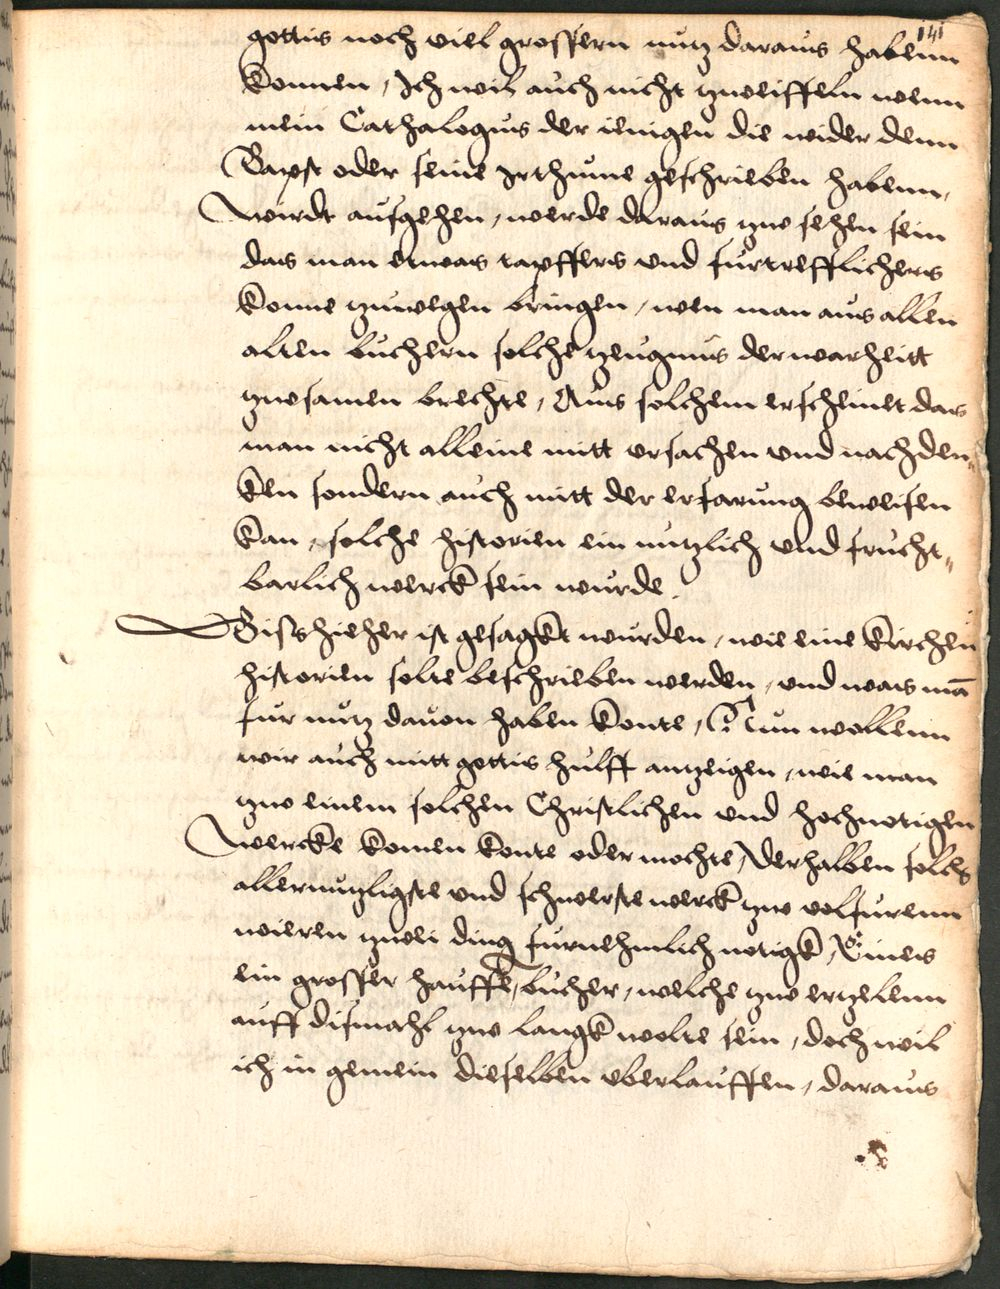 141
gottis noch viel grossern nutz daraus habenn
konnen, Ich wil auch nicht zweiffeln wenn
mein Cathalogus der ienigen die wider denn
Bapst oder seine irthume geschrieben habenn,
wirdt ausgehen, werde daraus zwo sehen sein
das man etwas tapffers und furtrefflichers
konne zuwegen bringen, wen man aus allen
alten buchern solche zeugnus der warheitt
zwosamen brechte, Aus solchem erscheinet das
man nicht alleine mitt ursachen und nachden„
ken sondern auch mitt der erfarung beweisen
kan, solche historien ein nutzlich und frucht„
barlich werck sein wurde.
Biss hieher ist gesagkt wurden, wie eine kirchen
historien solte beschrieben werden, und was mā
fur nutz dauon haben konte, Nun wollenn
wir auch mitt gottis hulff antzeigen, wie man
zwo einem solchen Christlichen und hochnotigen
wercke komen konte oder mochte, Derhalben solchs
allernutzligste und schwerste werck zwo volfurenn
weren zwei ding furnehmlich notigk, Eines
ein grosser hauffe, bucher, welche zwo erzelenn
auff dismahl zwo langk wolte sein, doch wil
ich in gemein dieselben uberlauffen, daraus